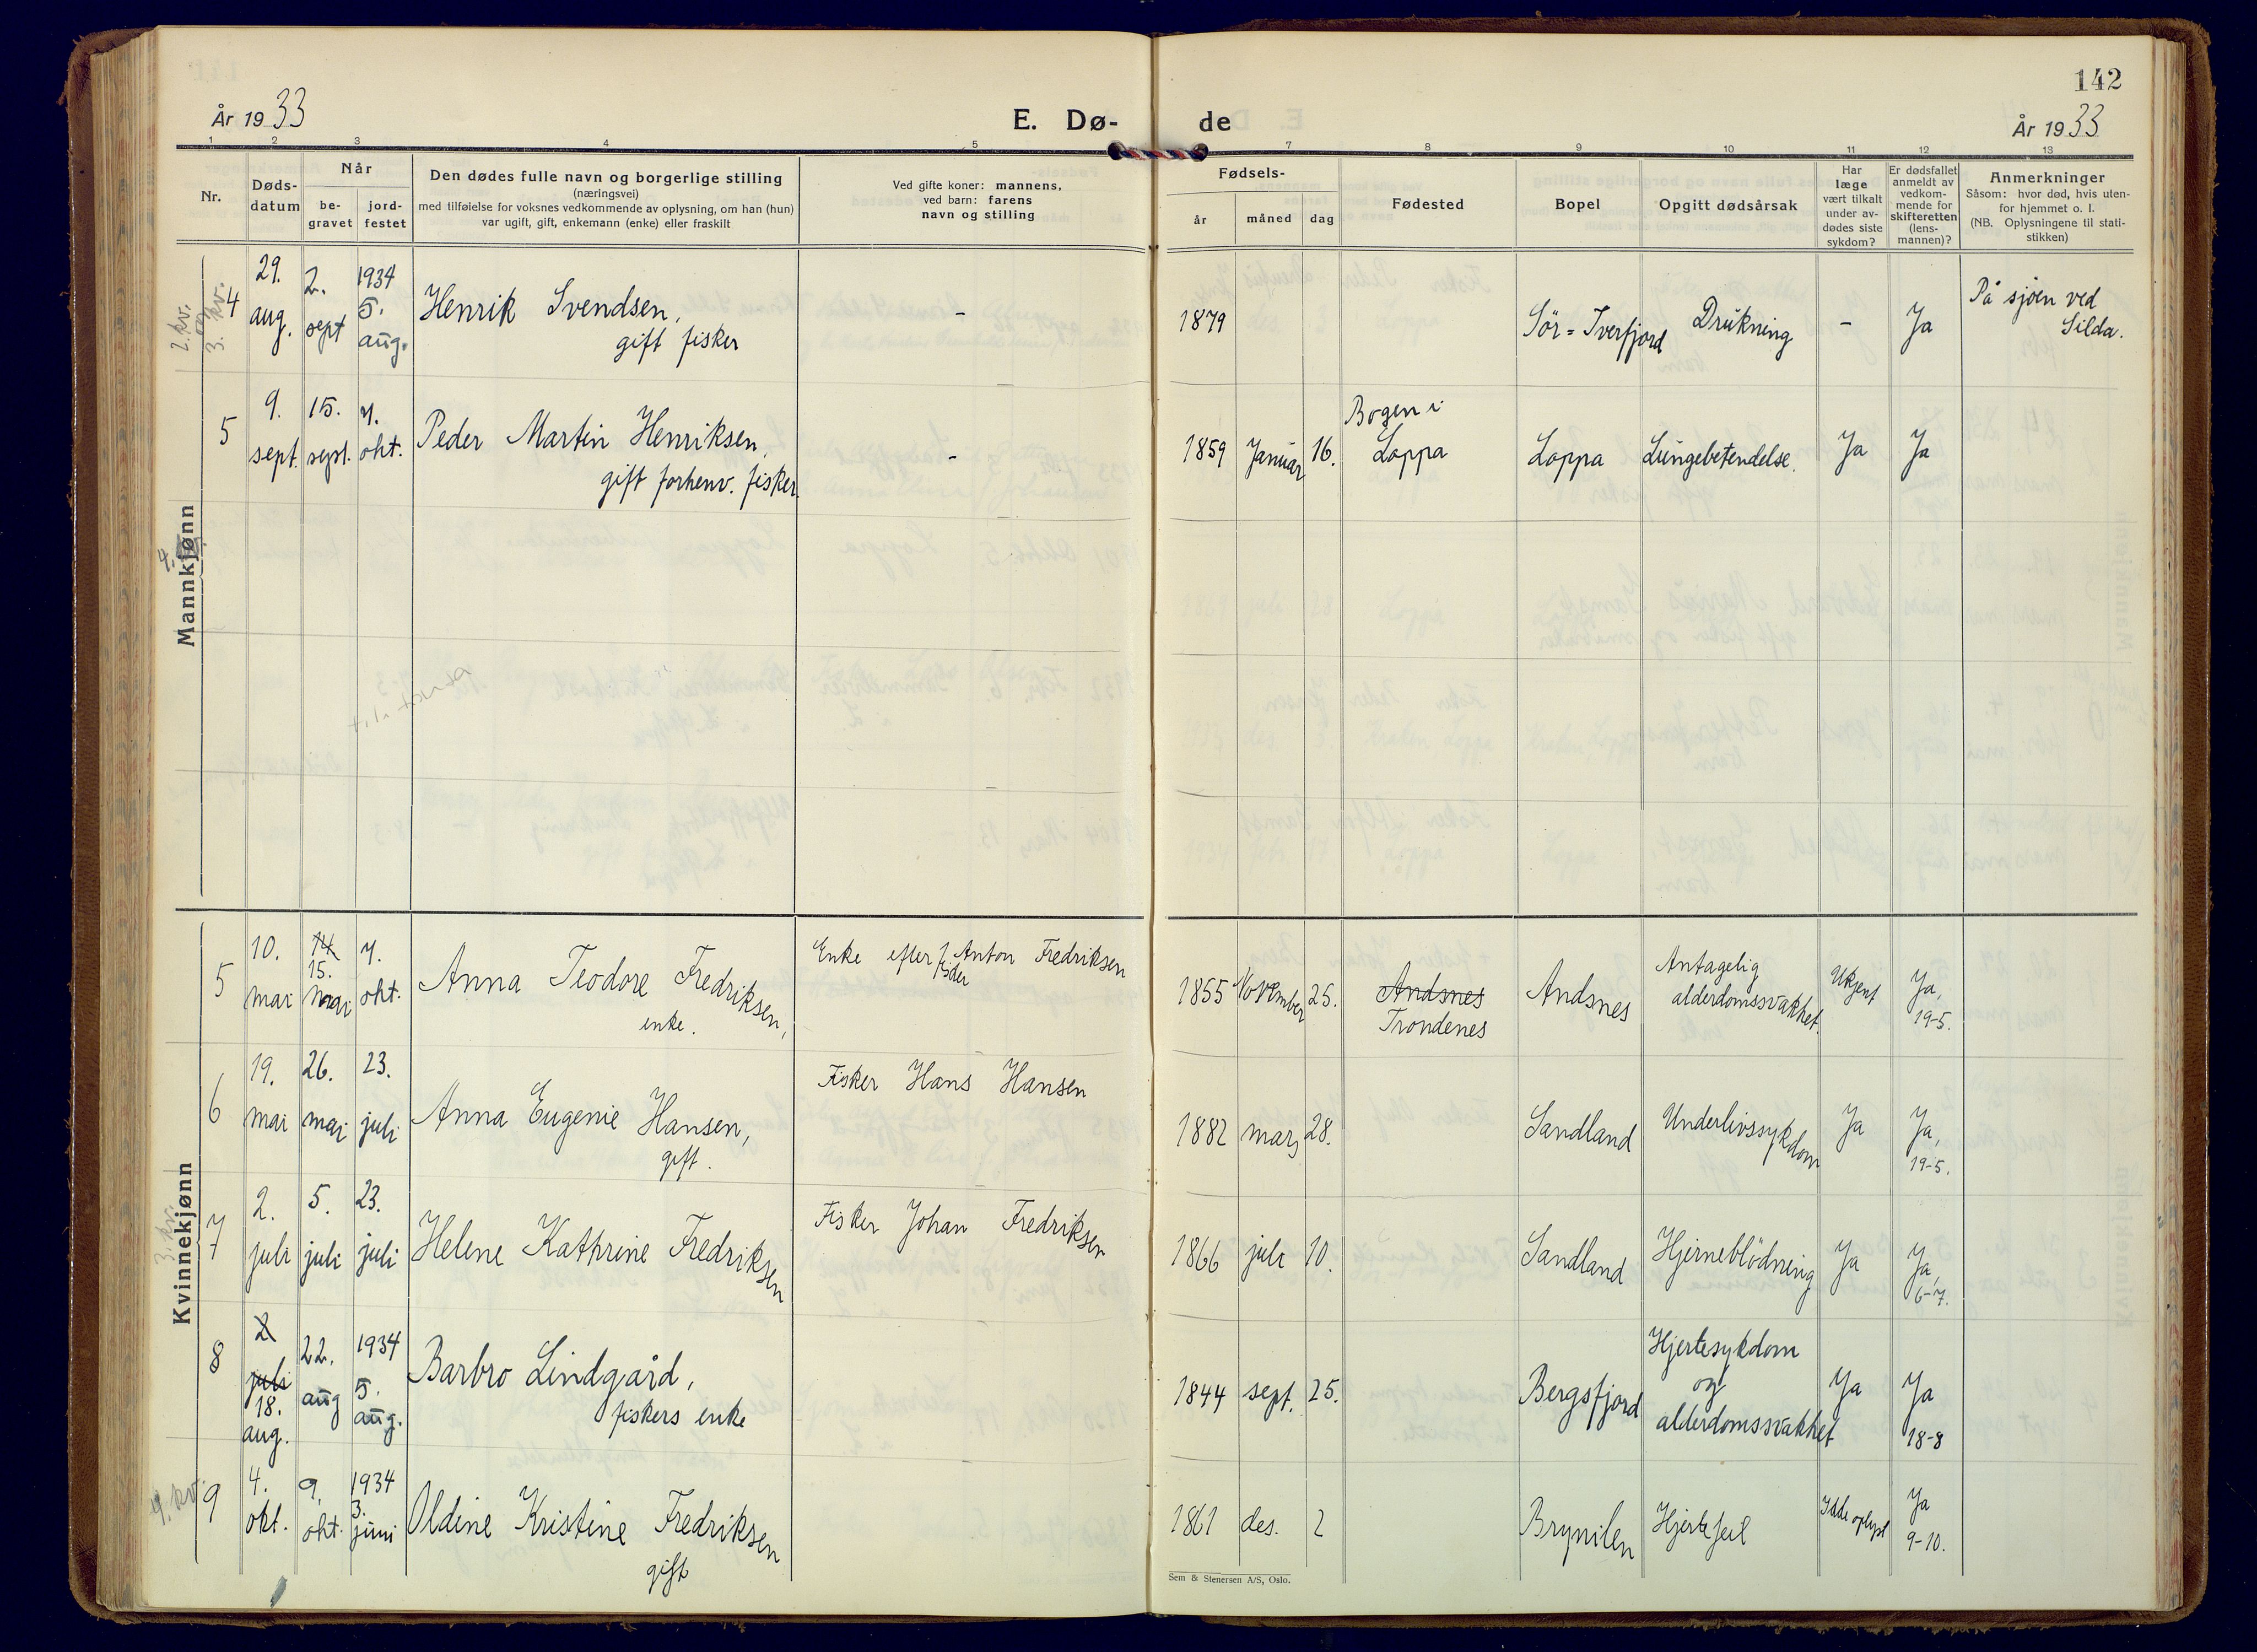 142
År 1933
E. Dø-
de
År 1933
1 2 3 4 5 7 8 9 10 11 12 13
Nr.
Døds-
datum
Når
be-
gravet
jord-
festet
Den dødes fulle navn og borgerlige stilling
(næringsvei)
med tilføielse for voksnes vedkommende av oplysning, om han (hun)
var ugift, gift, enkemann (enke) eller fraskilt
Ved gifte koner: mannens,
ved barn: farens
navn og stilling
Fødsels-
år
måned
dag
Fødested
Bopel
Opgitt dødsårsak
Har
læge
vært tilkalt
under av-
dødes siste
sykdom?
Er dødsfallet
anmeldt av
vedkom-
mende for
skifteretten
(lens-
mannen)?
Anmerkninger
Såsom: hvor død, hvis uten-
for hjemmet o. l.
(NB. Oplysningene til stati-
stikken)
Mannkjønn
2. kv.
3. kv.
4
29.
aug.
2.
sept
1934
5.
aug.
Henrik Svendsen,
gift fisker
-
1879
Sör=Tverfjord
Drukning
-
Ja
På sjøen ved
Silda.
5
9.
sept.
15.
sept.
7.
okt.
Peder Martin Henriksen,
gift forhenv. fisker
-
1859
Januar
16.
Bogen i
Loppa
Loppa
Lungebetendelse.
Ja
Ja
Kvinnekjønn
3. kv.
5
10.
mai
14
15.
mai
7.
okt.
Anna Teodore Fredriksen,
enke.
Enke efter f. Anton Fredriksen
1855
November
25.
Andsnes
Trondenes
Andsnes
Antagelig
alderdomssvakhet.
Ukjent
Ja,
19-5.
6
19.
mai
26.
mai
23.
juli
Anna Eugenie Hansen,
gift.
Fisker Hans Hansen
1882
mars
28.
Sandland
Underlivssykdom
Ja
Ja,
19-5.
7
2.
juli
5.
juli
23.
juli
Helene Kathrine Fredriksen
Fisker Johan Fredriksen
1866
juli
10.
Sandland
Hjerneblödning
Ja
Ja,
6-7.
8
2
juli
18.
aug.
22.
aug
1934
5.
aug.
Barbro Lindgård,
fiskers enke
1844
sept.
25.
Bergsfjord
Hjertesykdom
og
alderdomssvakhet
Ja
Ja
18-8
4. kv.
9
4.
okt.
9.
okt.
1934
3.
juni
Oldine Kristine Fredriksen
gift
1861
des.
2
Brynilen
Hjertefeil
Ikke oplyst
Ja
9-10.
Sem & Stenersen A/S, Oslo.